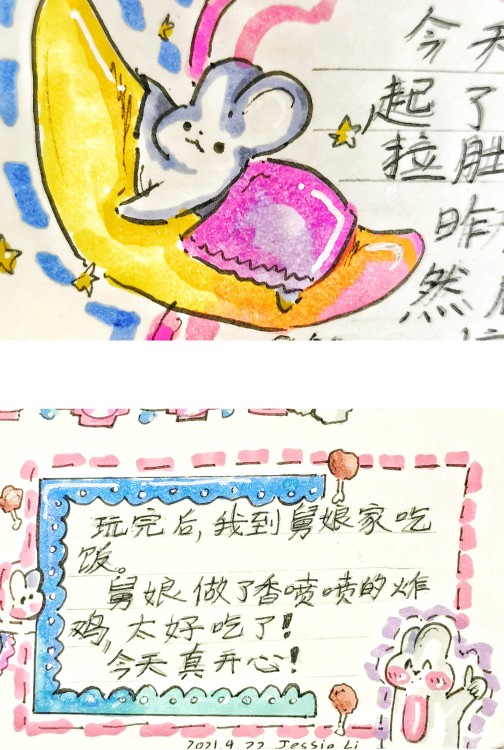 今天
起了
拉肚
昨
然
玩完后,我到舅娘家吃
饭。
舅娘做了香喷喷的炸
鸡,太好吃了!
今天真开心!
2021.9.22 Jessie Li